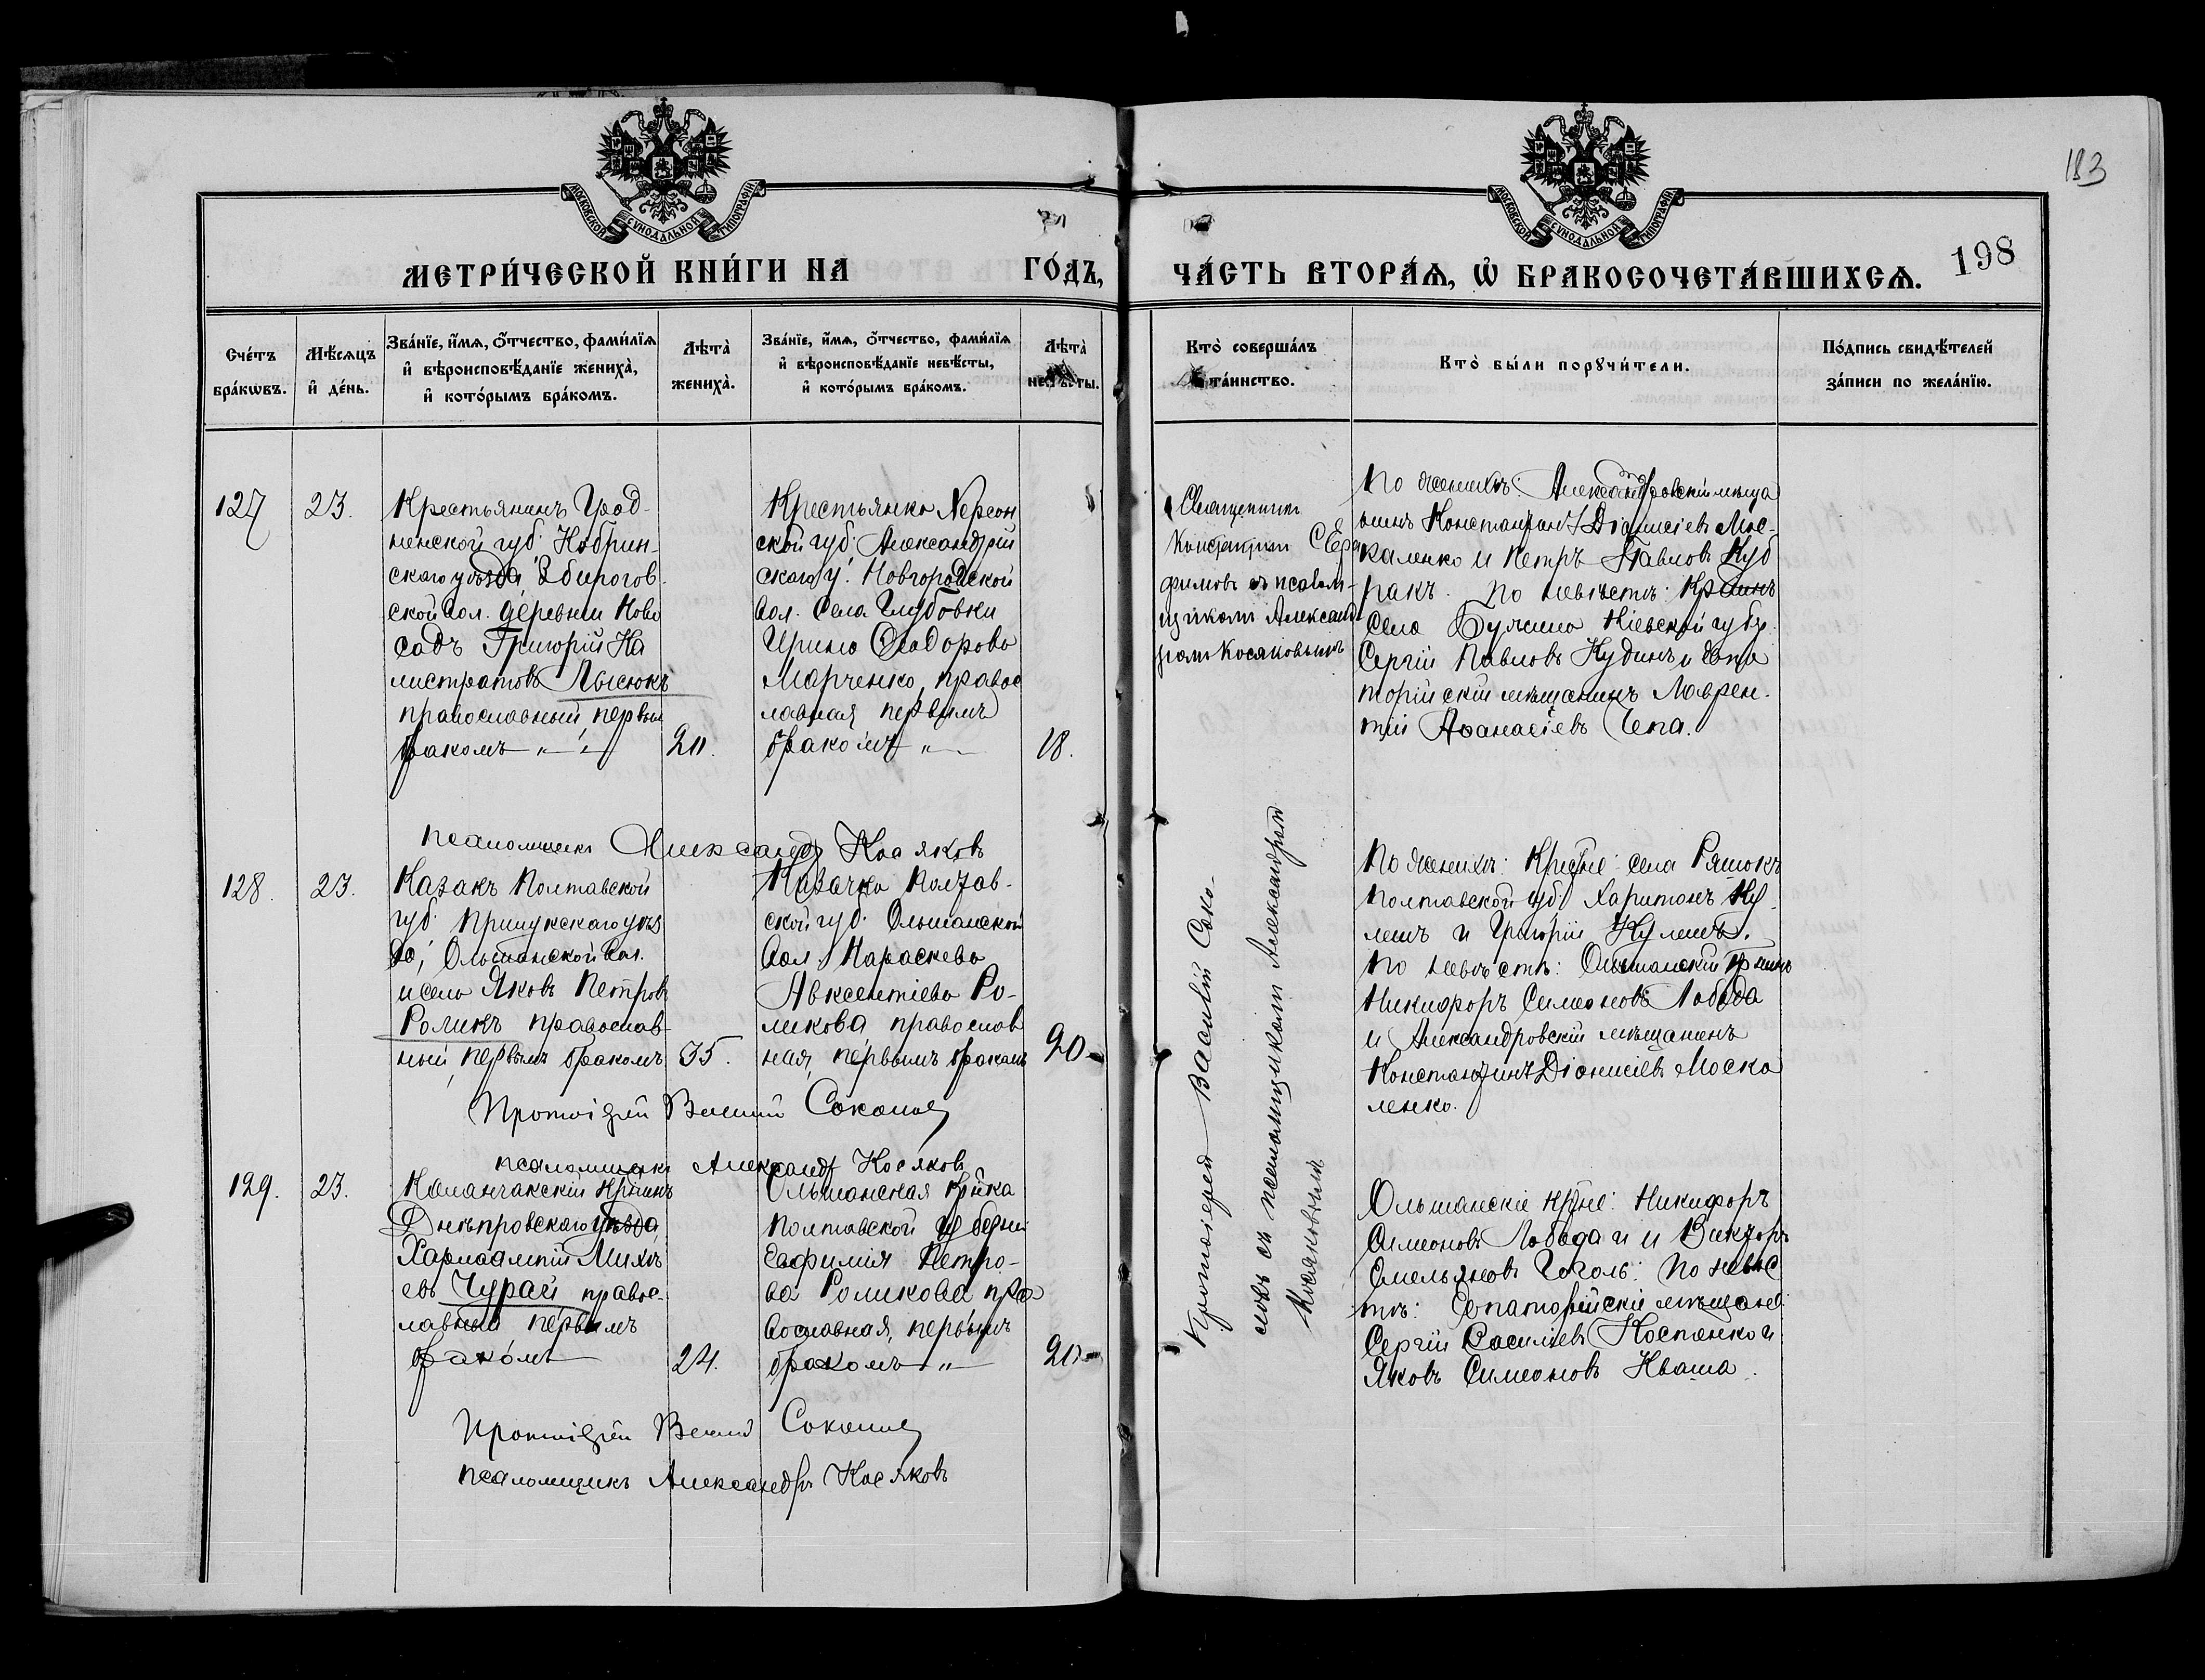 183
МОСКОВСКОЙ СѴНОДАЛЬНОЙ ТИПОГРАФІИ
МОСКОВСКОЙ СѴНОДАЛЬНОЙ ТИПОГРАФІИ
МЕТРИ́ЧЕСКОЙ КНИ́ГИ НА ГО́ДЪ,
ЧА́СТЬ ВТОРА́Ѧ, Ѡ҆ БРАКОСОЧЕТА́ВШИХСѦ.
198
Сче́тъ
бра́кѡвъ.
Мѣ́сѧцъ
и҆ де́нь.
Зва́нїе, и҆́мѧ, ѻ҆́тчество, фами́лїѧ
и҆ вѣроисповѣ́данїе жениха̀,
и҆ кото́рымъ бра́комъ.
Лѣта̀
жениха̀.
Зва́нїе, и҆́мѧ, ѻ҆́тчество, фами́лїѧ
и҆ вѣроисповѣ́данїе невѣ́сты,
и҆ кото́рымъ бра́комъ.
Лѣта̀
невѣ́сты.
Кто̀ соверша́лъ
та́инство.
Кто̀ бы́ли порꙋчи́тели.
По́дпись свидѣ́телей
за́писи по жела́нїю.
127
23.
Крестьянинъ Грод-
ненской губ. Кобрин-
скаго уѣзда, Збирогов
ской вол. деревни Ново
садъ Григорій Ка
листратовъ Лысюкъ
православный, первым
бракомъ
20.
Крестьянка Херсон
ской губ. Александрій
скаго у. Новгородской
вол. села Глубовки
Ирина Ѳеодорова
Марченко, правос
лавная первымъ
бракомъ
18.
Священникъ
Константин Сера
фимовъ съ псалом-
щикомъ Александ
ромъ Косяковымъ
По женихѣ: Александровскій мѣща
нинъ Константинъ Діонисіевъ Мос-
каленко и Петръ Павловъ Куд
ракъ. По невѣстѣ: Кр-нинъ
села Кіевской губ.
Сергій Павловъ Кудинъ и Евпа
торійскій мѣщанинъ Лаврен-
тій Аѳанасіевъ Чепа.
псаломщикъ Александръ Косяковъ
128.
23.
Казакъ Полтавской
губ. Прилукскаго уѣз
да, Ольшанской вол.
и села Яковъ Петровъ
Роликъ православ-
ный, первымъ бракомъ
35.
Казачка Полтав-
ской губ. Ольшанской
вол. Параскева
Авксентіева Ро-
ликова православ
ная, первымъ бракомъ
20
Протоіерей Василій Соко-
ловъ съ псаломщикомъ Александромъ
Косяковымъ
По женихѣ: Кр-не: села Ряшокъ
Полтавской губ. Харитонъ Ку
лешъ и Григорій Кулешъ.
По невѣстѣ: Ольшанскій кр-нинъ
Никифоръ Симеоновъ Лобода
и Александровскій мѣщанинъ
Константинъ Діонисіевъ Моска
ленко.
Протоіерей Василій Соколовъ
псаломщикъ Александръ Косяковъ
129.
23.
Каланчакскій кр-нинъ
Днѣпровскаго уѣзда
Харлампій Михѣ
евъ Чурай правос-
лавный первымъ
бракомъ
24.
Ольшанская кр-нка
Полтавской губерніи
Евфимія Петро-
ва Роликова пра
вославная, первымъ
бракомъ
20
Ольшанскіе кр-не: Никифоръ
Симеоновъ Лобода и Викторъ
Емельяновъ Гоголь: По невѣс
тѣ: Евпаторійскіе мѣщане:
Сергій Васильевъ Костенко и
Яковъ Симеоновъ Кваша.
Протоіерей Василій Соколовъ
псаломщикъ Александръ Косяковъ